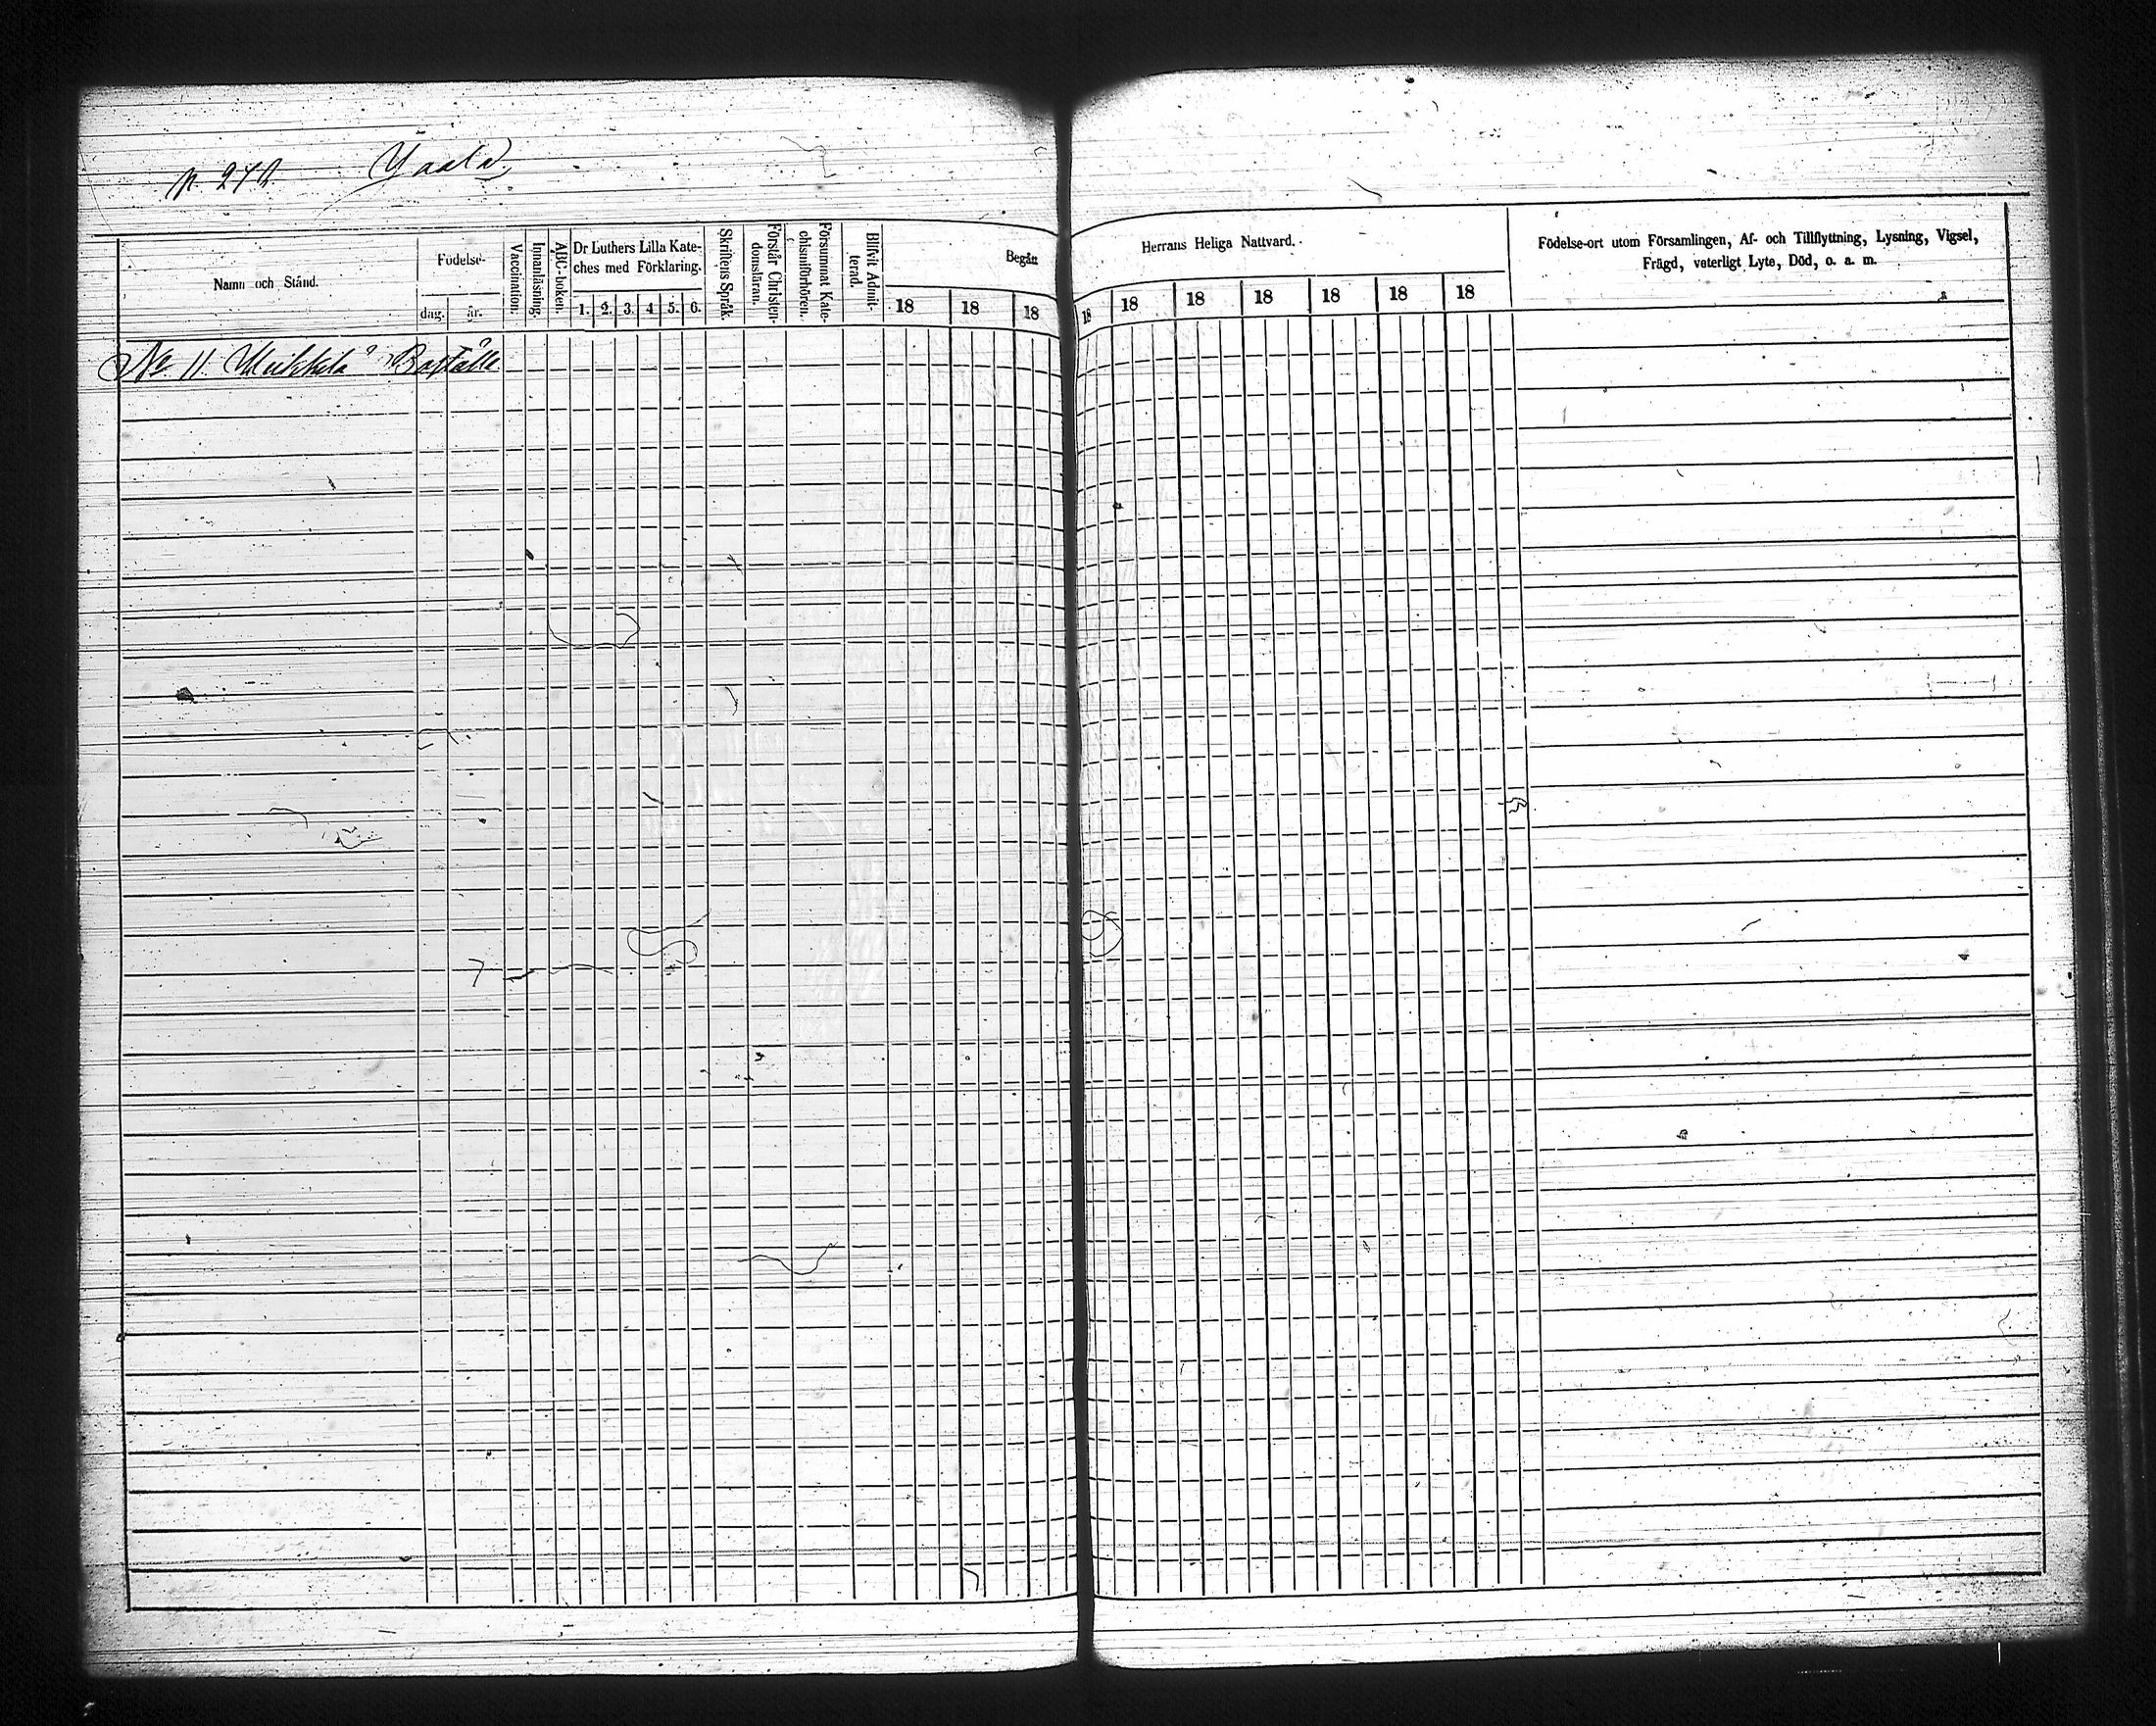 p. 248
Namn och Stånd.
Födelse-
dag.
år.
Vaccination.
Innanläsning.
ABC-boken.
Dr Luthers Lilla Kate-
ches med Förklaring.
1. 2. 3. 4 5. 6.
Skriftens Språk.
Förstår Christen-
domsläran.
Försummat Kate-
chismiförhören.
Blifvit Admit-
terad.
Begått
18 18 18
Herrans Heliga Nattvard.
18 18 18 18 18 18 18
Födelse-ort utom Församlingen, Af- och Tillflyttning, Lysning, Vigsel,
Frägd, veterligt Lyte, Död, o. a. m.
No 11.